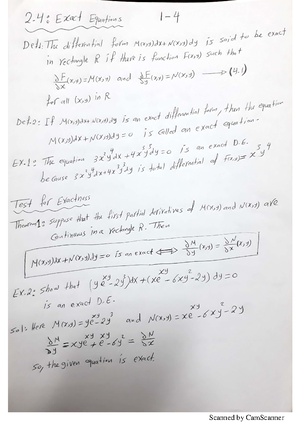 2.4: Exact Equations 1-4
Def1: The differential form M(x,y)dx+N(x,y)dy is said to be exact
in rectangle R if there is function F(x,y) such that
∂F/∂x (x,y)=M(x,y) and ∂F/∂y (x,y)=N(x,y) → (4.1)
for all (x,y) in R
Def.2: If M(x,y)dx+N(x,y)dy is an exact differential form, then the equation
M(x,y)dx+N(x,y)dy=0 is called an exact equation.
Ex.1: The equation 3x²y⁴dx+4x³y³dy=0 is an exact D.E.
because 3x²y⁴dx+4x³y³dy is total differential of F(x,y)=x³y⁴
Test for Exactness
Theorem1: Suppose that the first partial derivatives of M(x,y) and N(x,y) are
continuous in a rectangle R. Then
M(x,y)dx+N(x,y)dy=0 is an exact ⟺ ∂M/∂y (x,y)=∂N/∂x (x,y)
Ex.2: Show that (ye^xy-2y³)dx+(xe^xy-6xy²-2y)dy=0
is an exact D.E.
Sol: Here M(x,y)=ye^xy-2y³ and N(x,y)=xe^xy-6xy²-2y
∂M/∂y=xye^xy+e^xy-6y²=∂N/∂x
So, the given equation is exact
Scanned by CamScanner